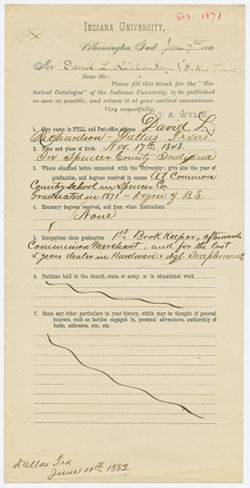 Gr. 1871
INDIANA UNIVERSITY,
Bloomington, Ind June 7th 1882
Mr. David L Richardson (Dallas Texas)
Dear Sir:
Please fill this blank for the "Historical
Catalogue" of the Indiana University, to be published
as soon as possible, and return it at your earliest convenience.
Very respectfully,
T. A. WYLIE
1. Give name in FULL, and Post-office address David L
Richardson Dallas Texas
2. Time and place of birth Nov 17th 1848
In Spencer County Indiana
3. Where educated before connected with the University; give also the year of
graduation, and degrees received in course At Common
County School in Spencer Co
Graduated in 1871 - Degree of B.S.
4. Honorary degrees received, and from what Institutions
None
5. Occupations since graduation 1st Book Keeper, afterwards
Commission Merchant, and for the last
5 years dealer in Hardware & Agl. Implements
6. Positions held in the church, state, or army, or in educational work
7. State any other particulars in your history, which may be thought of general
interest, such as battles engaged in, personal adventures, authorship of
books, addresses, etc., etc.
Dallas Tex
June 11th 1882